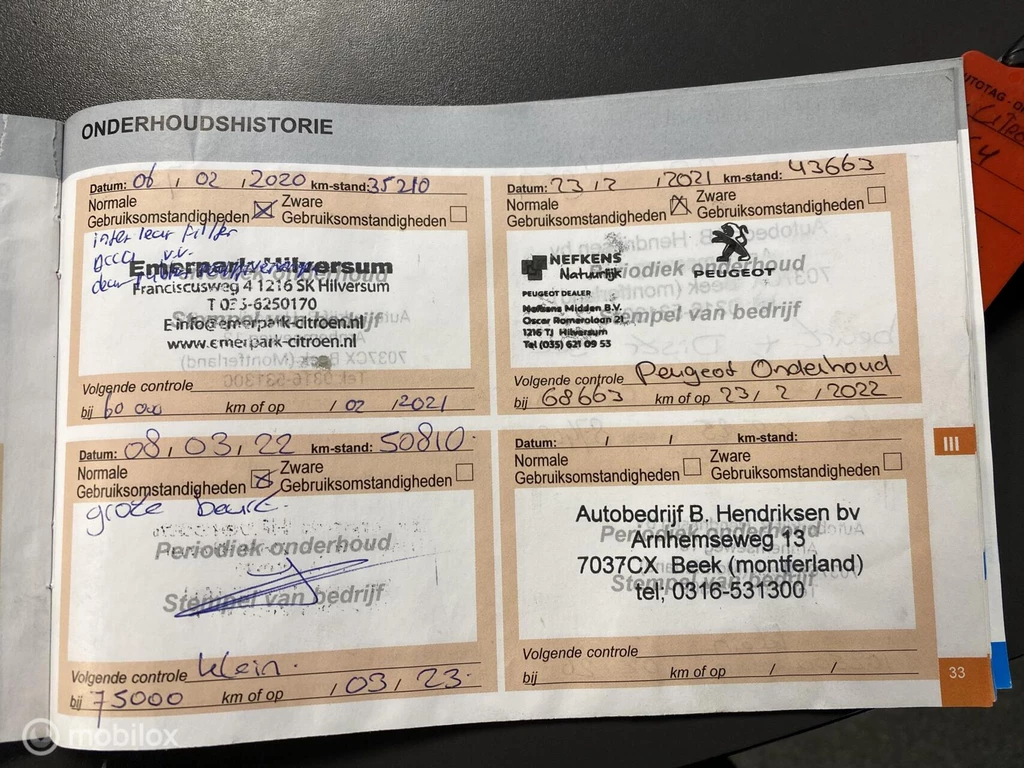 ONDERHOUDSHISTORIE
Datum: 06 / 02 / 2020 km-stand: 35210
Normale
Gebruiksomstandigheden
Zware
Gebruiksomstandigheden
interieur filter
Emerpark Hilversum
Franciscusweg 4 1216 SK Hilversum
T 035-6250170
E info@emerpark-citroen.nl
www.emerpark-citroen.nl
Periodiek onderhoud
Stempel van bedrijf
Volgende controle
bij 60 000 km of op / 02 / 2021
Datum: 23 / 2 / 2021 km-stand: 43663
Normale
Gebruiksomstandigheden
Zware
Gebruiksomstandigheden
NEFKENS
Natuurlijk
PEUGEOT
PEUGEOT DEALER
Nefkens Midden B.V.
Oscar Romerolaan 21
1216 TJ Hilversum
Tel (035) 621 09 53
Periodiek onderhoud
Stempel van bedrijf
Volgende controle Peugeot Onderhoud
bij 68663 km of op 23 / 2 / 2022
Datum: 08 / 03 / 22 km-stand: 50810.
Normale
Gebruiksomstandigheden
Zware
Gebruiksomstandigheden
grote beurt.
Periodiek onderhoud
Stempel van bedrijf
Volgende controle klein.
bij 75000 km of op / 03 / 23.
Datum: / / km-stand:
Normale
Gebruiksomstandigheden
Zware
Gebruiksomstandigheden
Autobedrijf B. Hendriksen bv
Arnhemseweg 13
7037CX Beek (montferland)
tel, 0316-531300
Periodiek onderhoud
Stempel van bedrijf
Volgende controle
bij km of op / /
III
33
mobilox